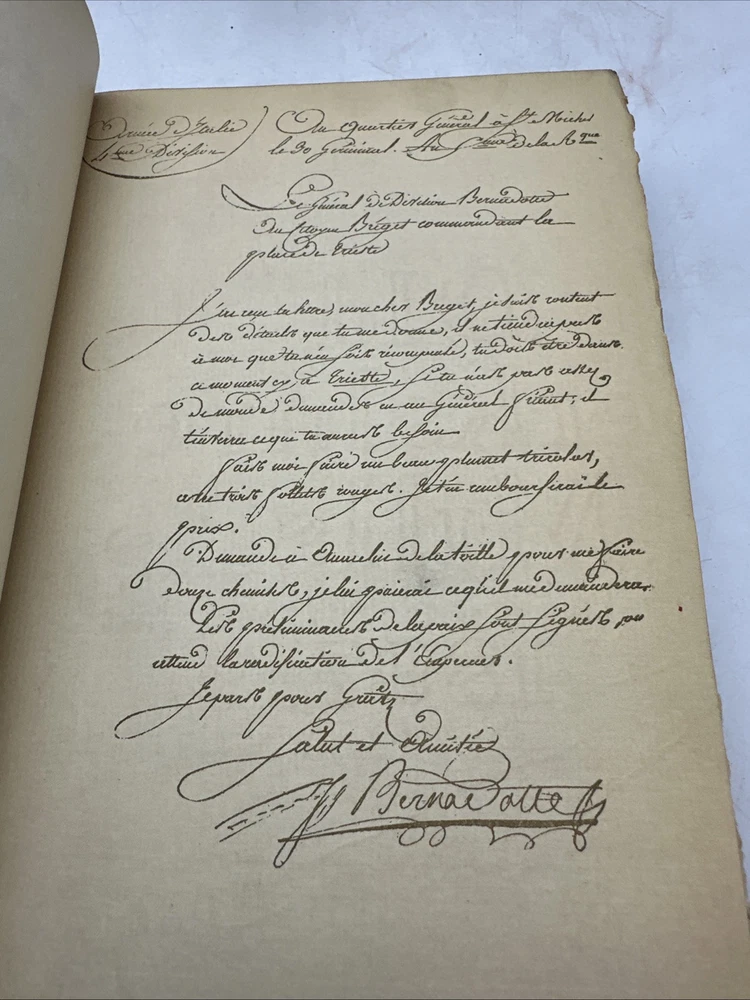 Armée d'Italie
4eme Division
Au Quartier Général à St. Michel
le 30 Germinal. An 5eme de la Rque
Le Général de Division Bernadotte
Au Citoyen Bréget commandant la
place de Trieste
la lettre, mon cher Breget, je suis content
des détails que tu me donne, il ne tiendra pas
à moi que tu n'en sois récompensé, tu dois être dans
ce moment cy à Trieste, si tu n'as pas assez
de monde demandes en au Général Friant, il
t'enverra ce que tu auras besoin
fais moi faire un beau plumet tricolor,
avec trois follets rouges. Je t'en rembourserai le
prix.
Demande à de la toille pour me faire
douze chemises, je lui paierai ce qu'il me demandera.
Les préliminaires de la paix sont signés, on
attend la ratification de l'Empereur.
Je pars pour Gratz
Salut et Amitié
J Bernadotte